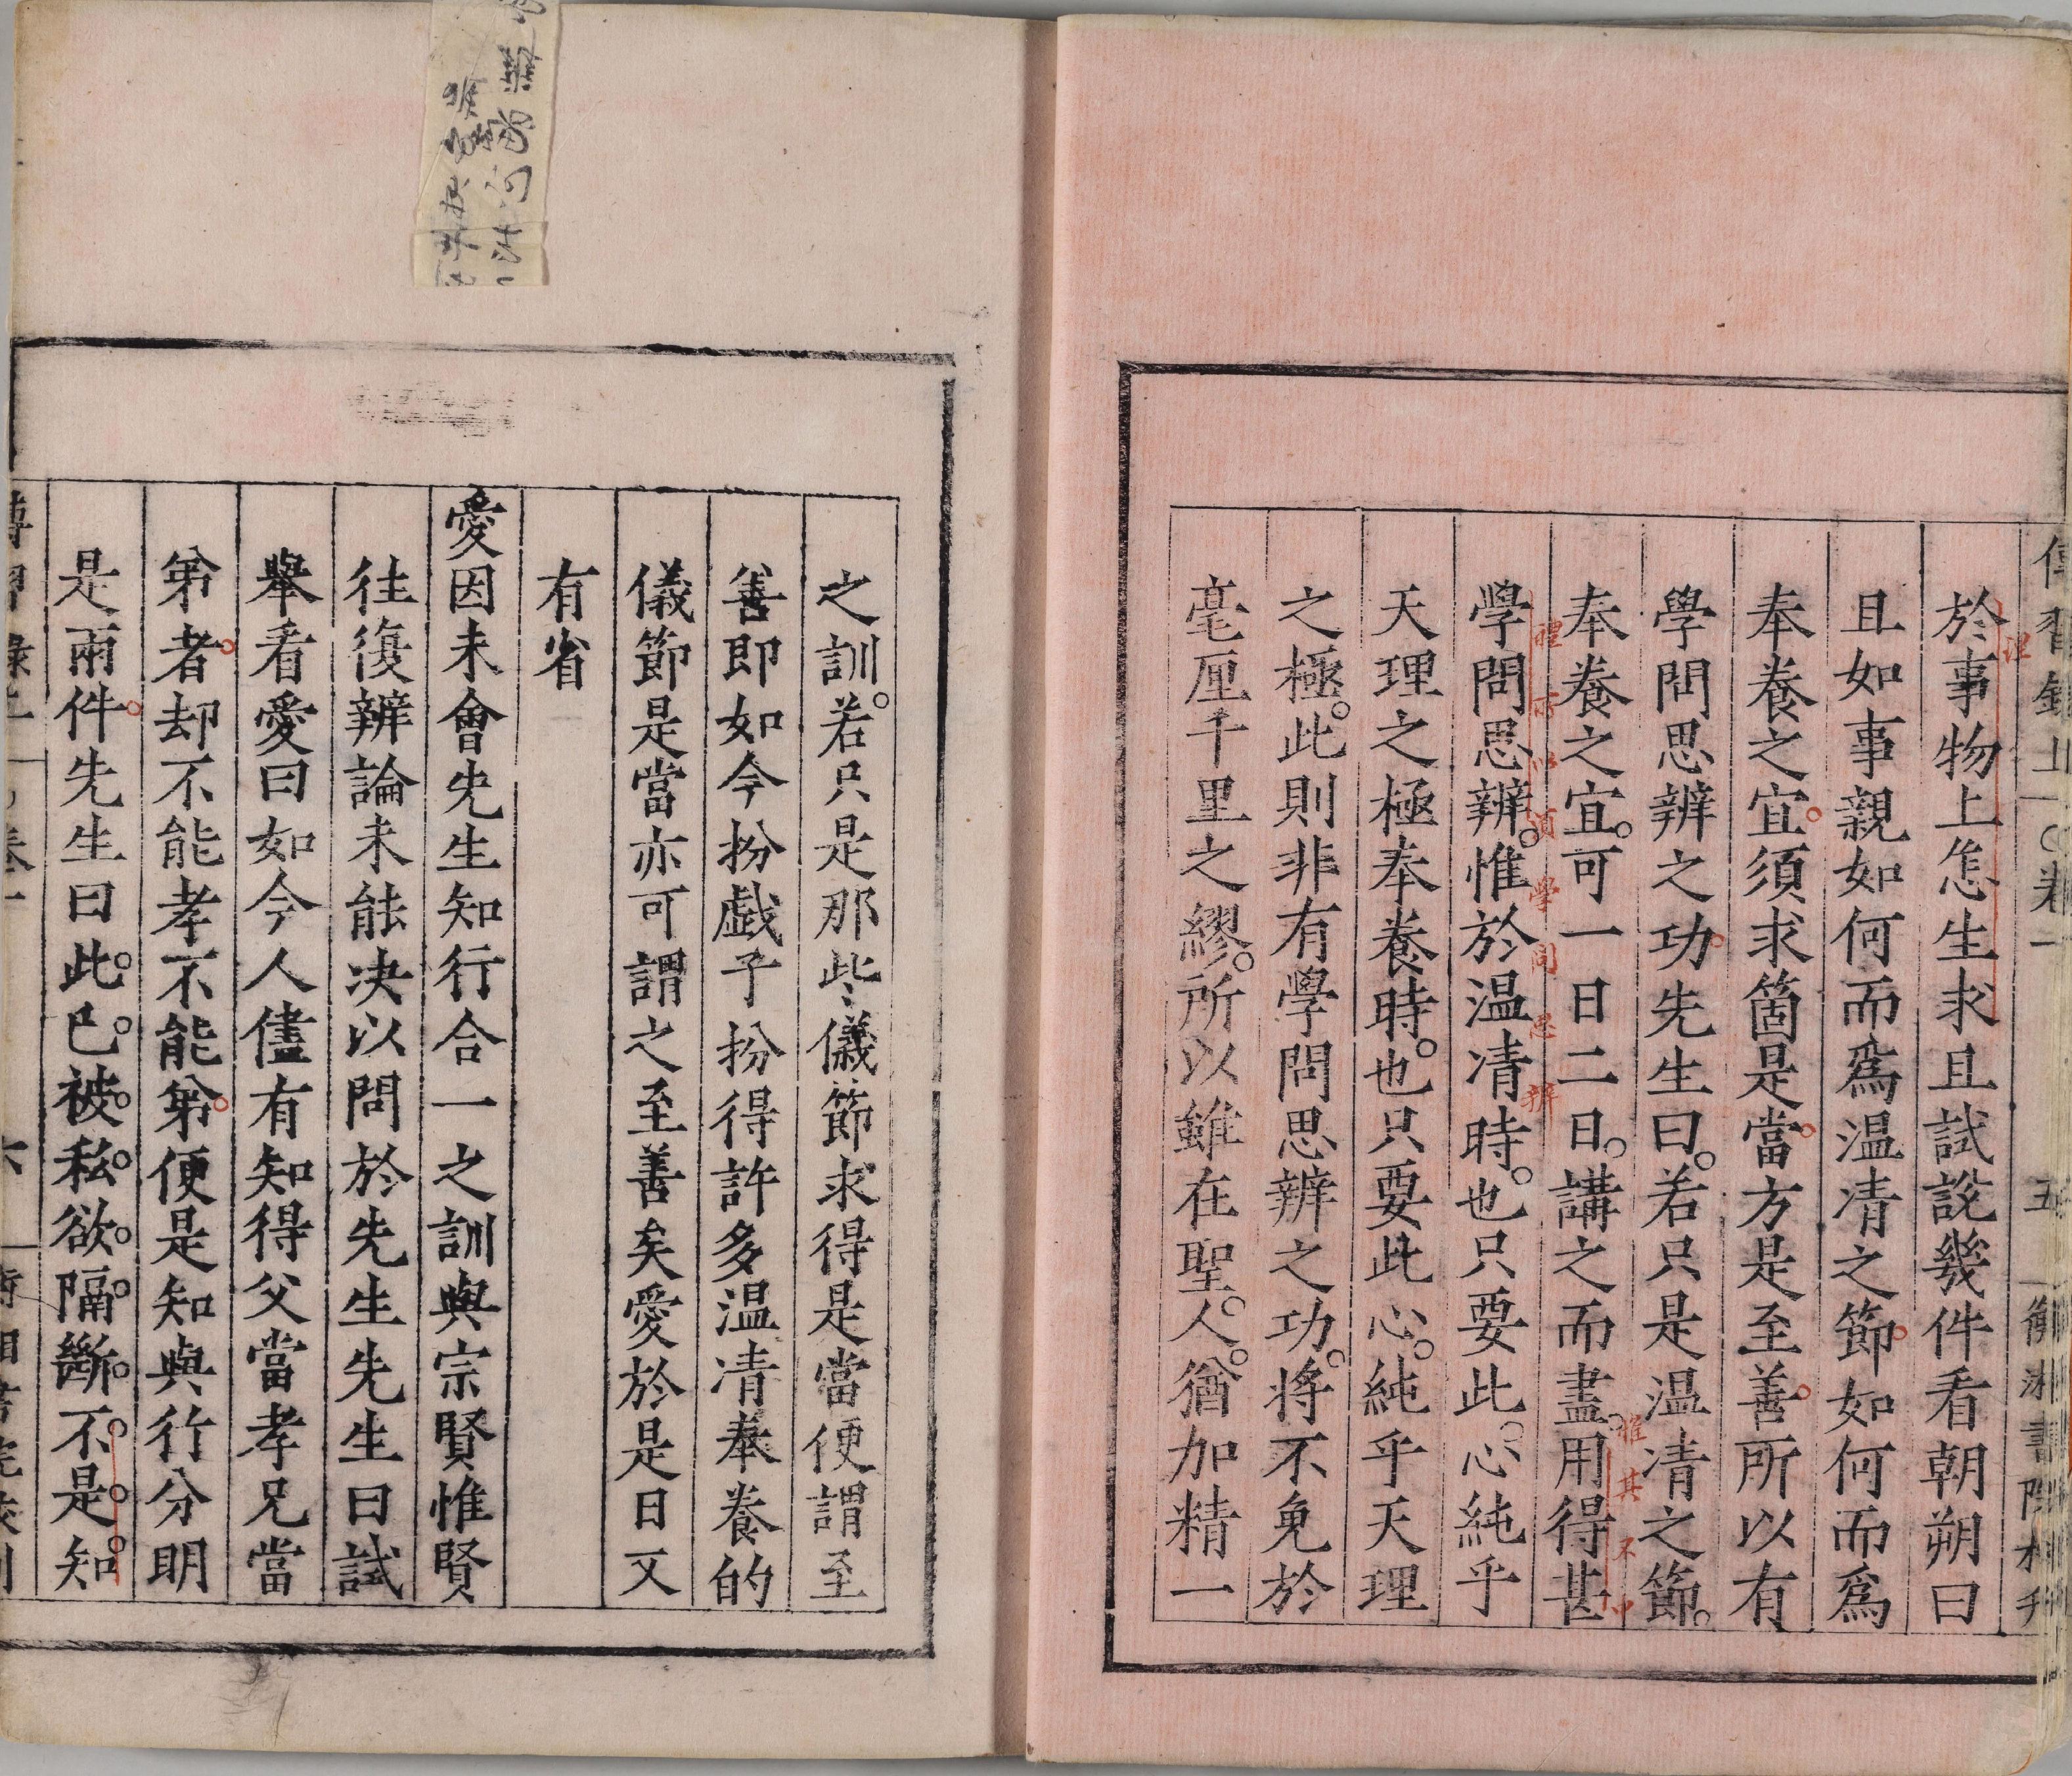 於事物上怎生求且試說幾件看朝朔曰
且如事親如何而爲温凊之節如何而爲
奉養之宜須求箇是當方是至善所以有
學問思辨之功先生曰若只是温凊之節
奉養之宜可一日二日講之而盡用得甚
學問思辨惟於温凊時也只要此心純乎
天理之極奉養時也只要此心純乎天理
之極此則非有學問思辨之功將不免於
毫厘千里之繆所以雖在聖人猶加精一
之訓若只是那些儀節求得是當便謂至
善即如今扮戲子扮得許多温凊奉養的
儀節是當亦可謂之至善矣愛於是日又
有省
愛因未會先生知行合一之訓與宗賢惟賢
往復辨論未能决以問於先生先生曰試
舉看愛曰如今人儘有知得父當孝兄當
弟者却不能孝不能弟便是知與行分明
是兩件先生曰此已被私欲隔斷不是知